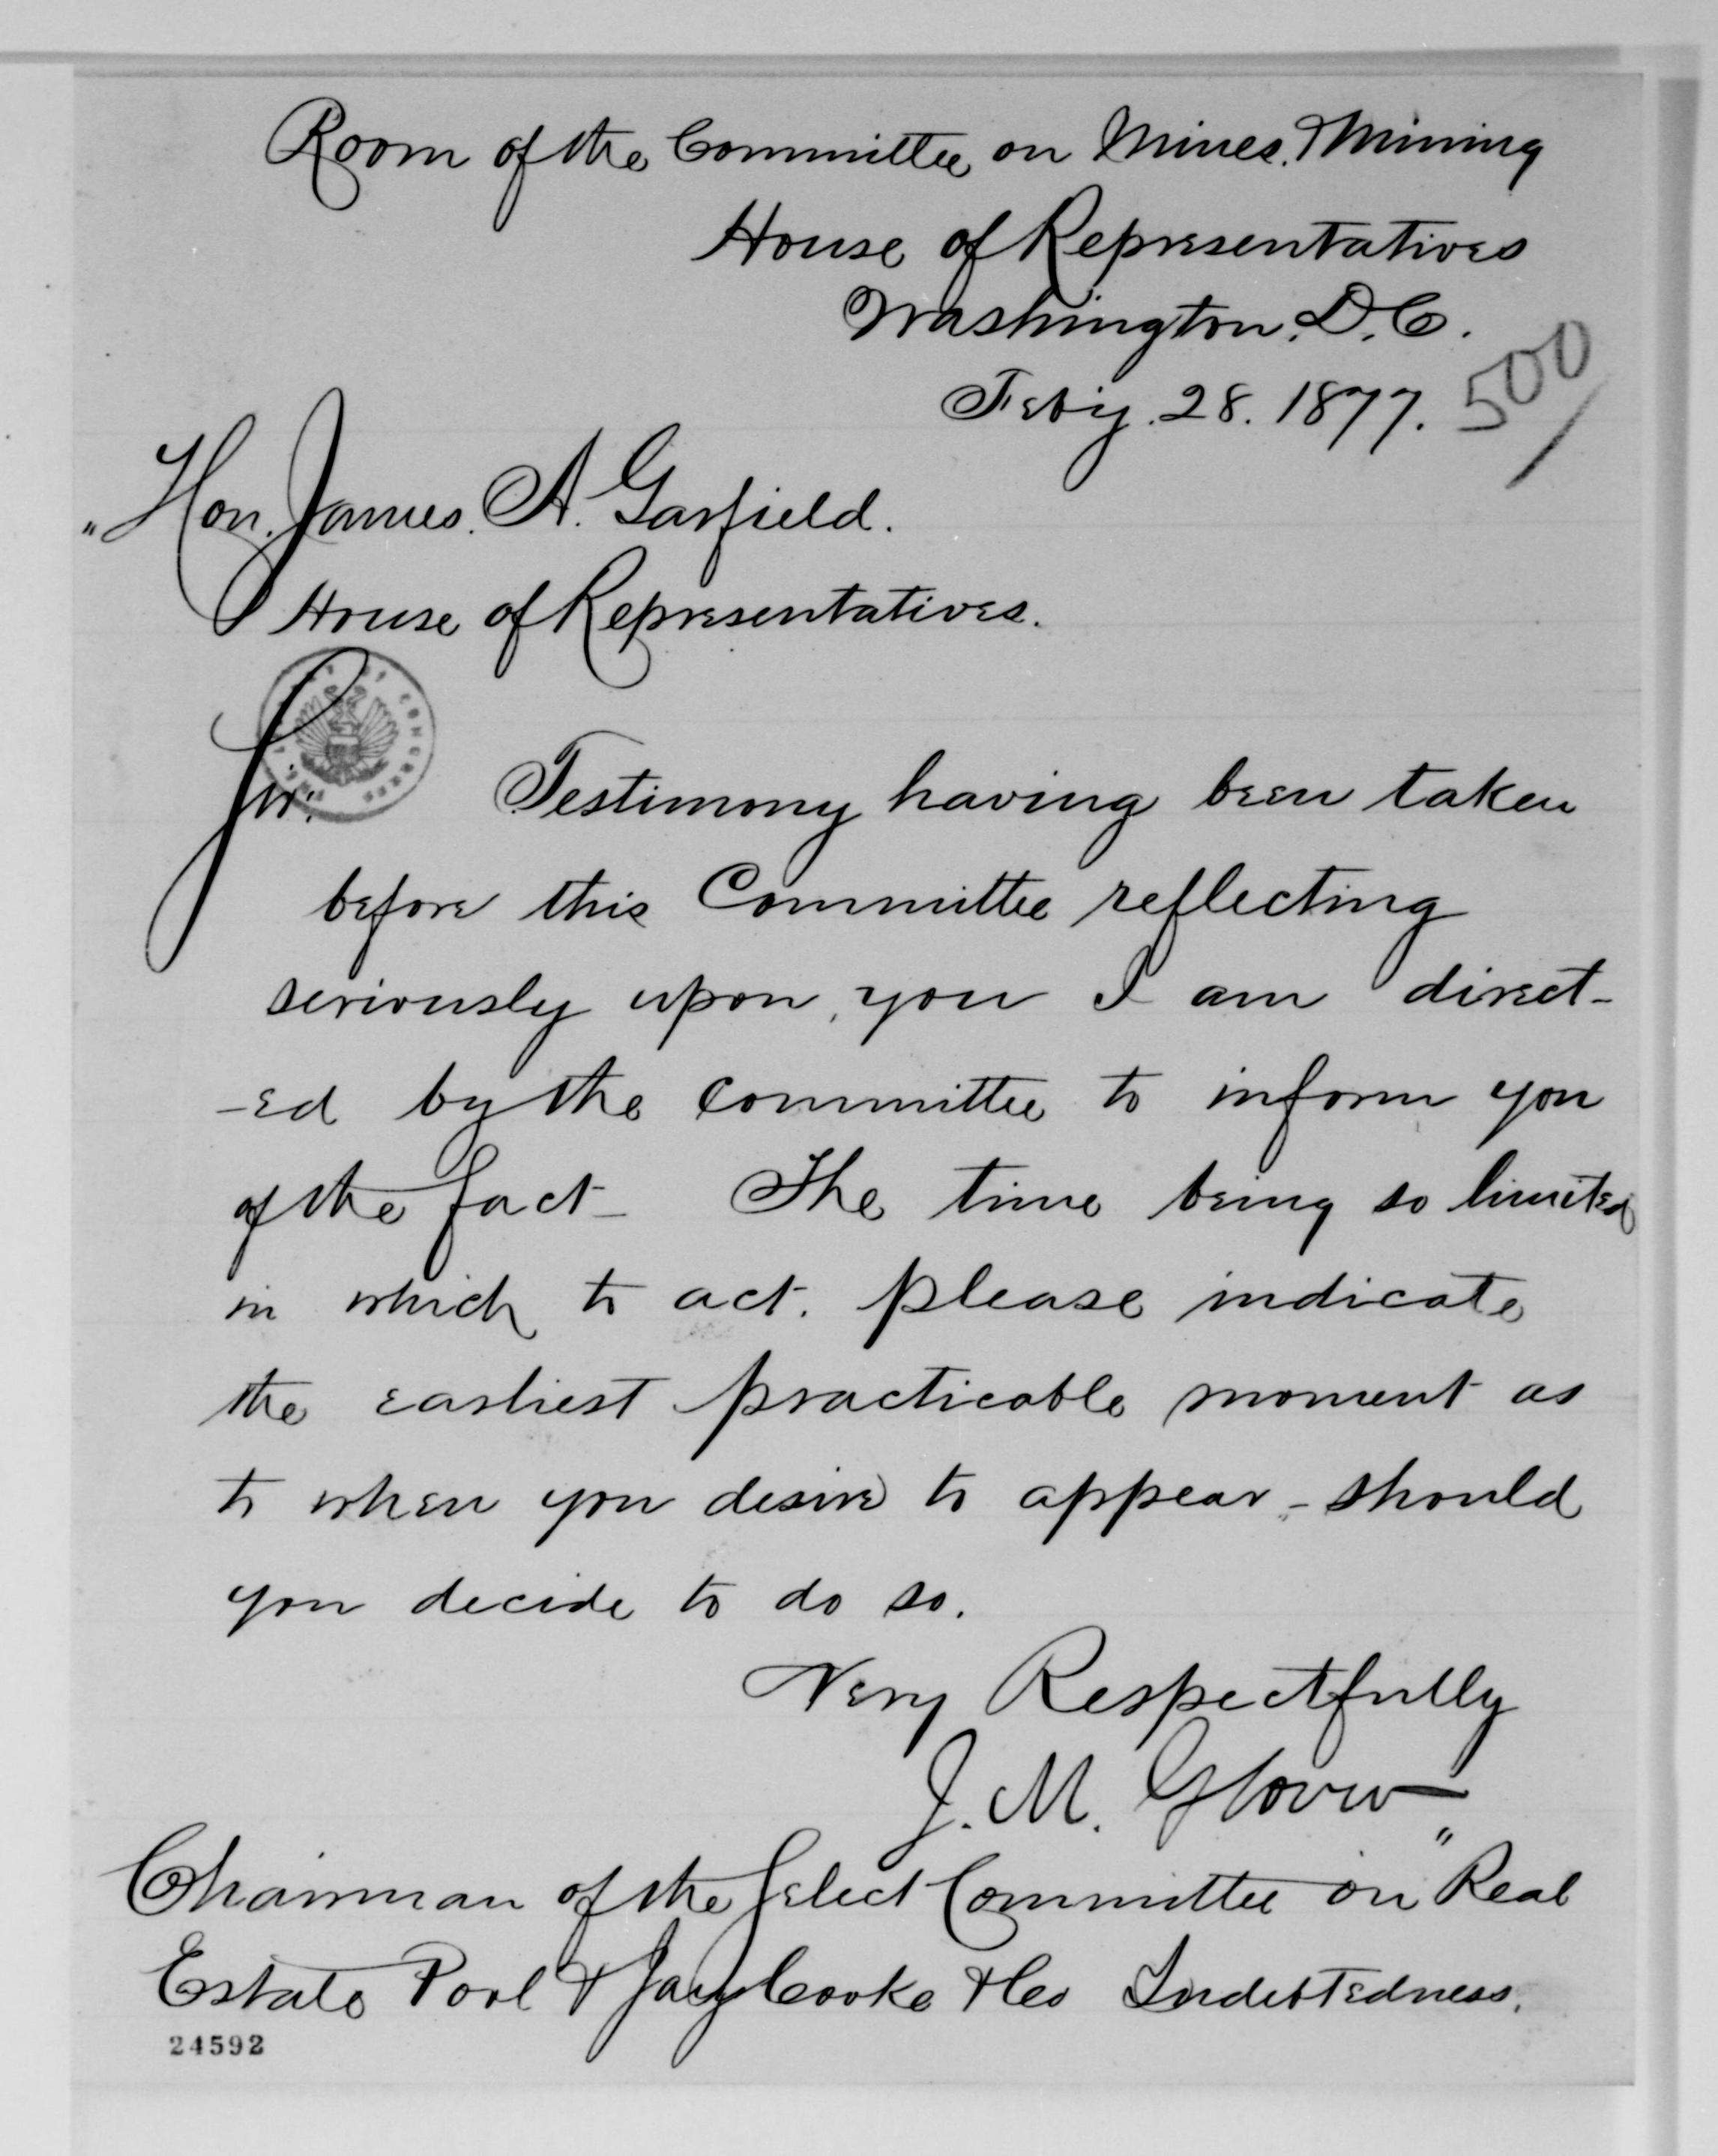 Room of the Committee on Mines. & Mining
House of Representatives
Washington. D.C.
Feby. 28. 1877.
500/
"Hon. James. A. Garfield.
House of Representatives.
Sir: Testimony having been taken
before this Committee reflecting
seriously upon, you I am direct-
-ed by the Committee to inform you
of the fact - The time being so limited
in which to act. please indicate
the earliest practicable moment as
to when you desire to appear - should
you decide to do so.
Very Respectfully
J. M. Glover
Chairman of the Select Committee on "Real
Estate Pool & Jay Cooke & Co Indebtedness.
24592